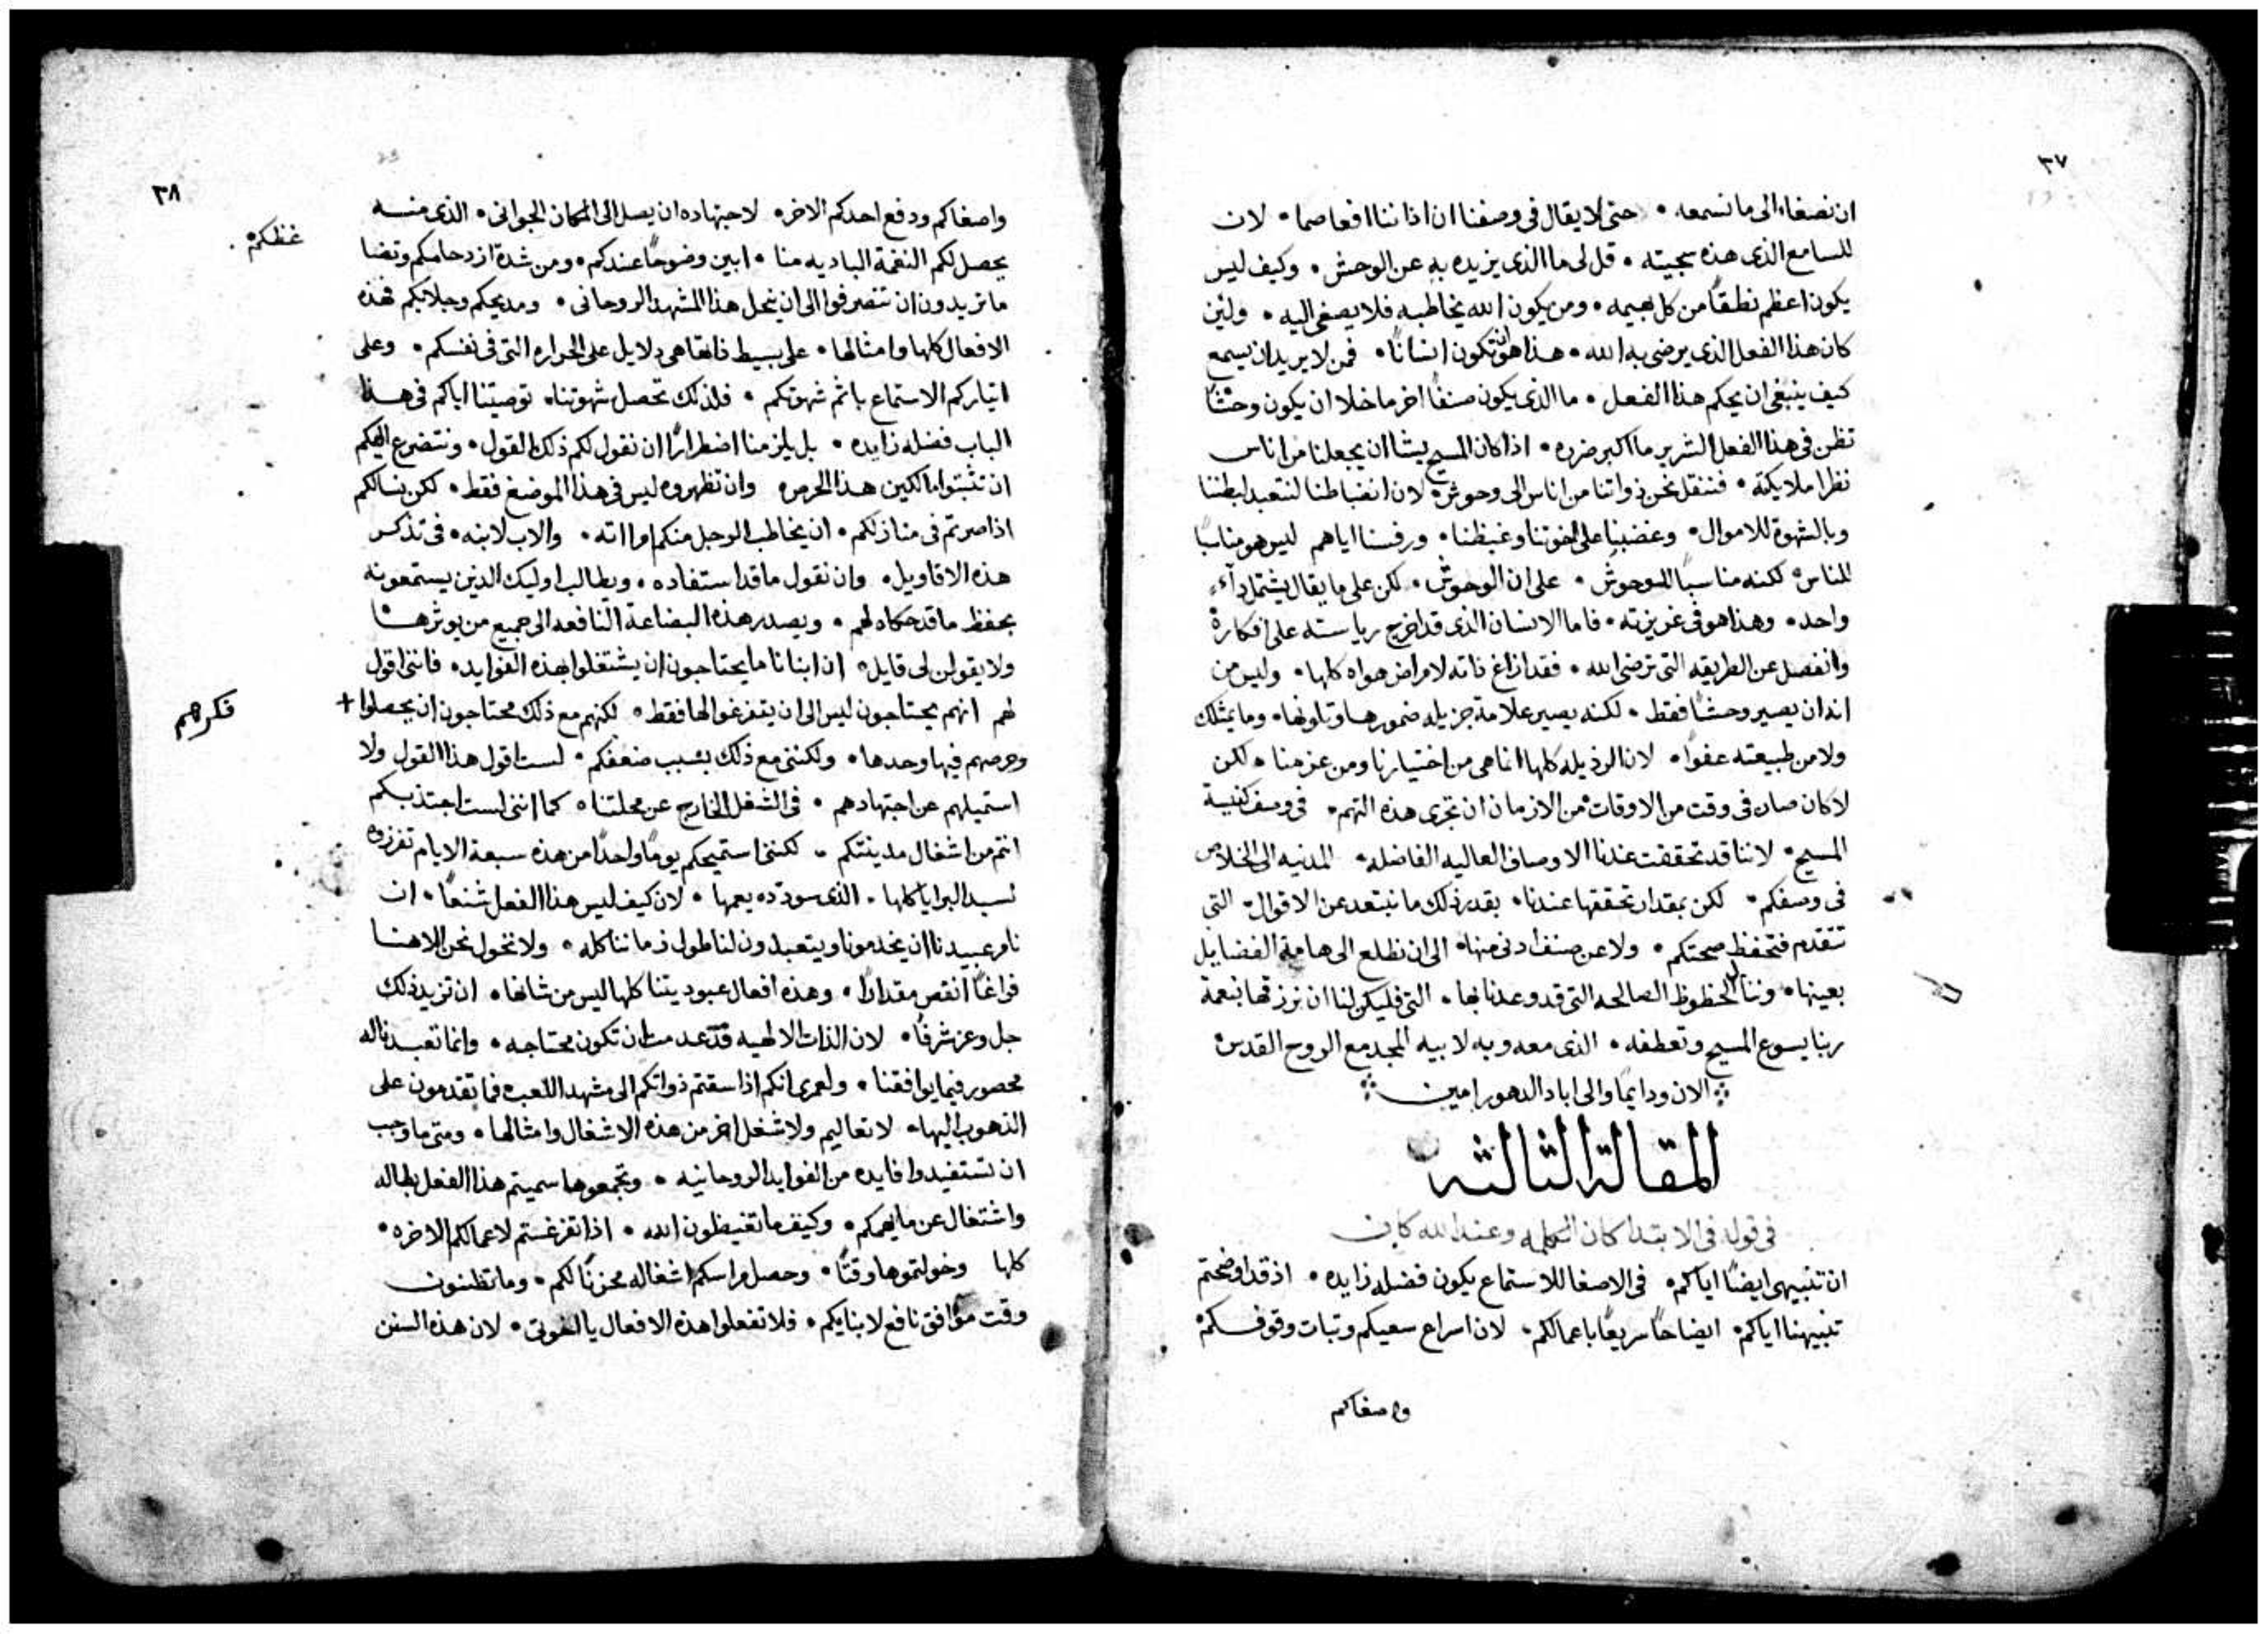 ٣٧
ان نصغاء الى ما نسمعه • حتى لا يقال فى وصفنا ان اذاننا افعا صما • لان
للسامع الذى هذه سجيته • قل لى ما الذى يزيده به عن الوحش • وكيف ليس
يكون اعظم نطقاً من كل بهيمه • ومن يكون الله يخاطبه فلا يصغى اليه • ولين
كان هذا الفعل الذى يرضى به الله • هذا هو ان تكون انساناً • فمن لا يريد ان يسمع
كيف ينبغى ان يحكم هذا الفعل • ما الذى يكون صنفاً اخر ما خلا ان يكون وحشاً
تظن فى هذا الفعل الشرير ما اكبر ضرره • اذا كان المسيح يشا ان يجعلنا من اناس
نظرا ملايكته • فننقل نحن ذواتنا من اناس الى وحوش • لان انضباطنا لنتعبد لبطننا
وبالشهوة للاموال • وغضبنا على اخوتنا وغيظنا • ورفسنا اياهم ليس هو مناسباً
للناس • لكنه مناسباً للوحوش • على ان الوحوش • لكن على ما يقال يشتمل داء
واحد • وهذا هو فى غريزته • فاما الانسان الذى قد اخرج رياسته على افكاره
وانفصل عن الطريقه التى ترضى الله • فقد ازاغ ذاته لامراض هواه كلها • وليس من
انه ان يصير وحشاً فقط • لكنه يصير علامة جزيله ضمورها وتلونها • وما يمتلك
ولا من طبيعته عفواً • لان الرذيله كلها انما هى من اختيارنا ومن عزمنا • لكن
لا كان صار فى وقت من الاوقات من الازمان ان تجرى هذه التهم • فى وصف كنيسة
المسيح • لاننا قد تحققت عندنا الاوصاف العاليه الفاضله • المدنيه الى الخلاص
فى وصفكم • لكن بمقدار تحققها عندنا • بقدر ذلك ما نبتعد عن الاقوال • التى
تتقدم فتحفظ صحتكم • ولا عن صنف ادنى منها • الى ان نطلع الى هامة الفضايل
بعينها • وننال الحظوظ الصالحه التى قد وعدنا بها • التى فليكن لنا ان نرزقها بنعمة
ربنا يسوع المسيح وتعطفه • الذى معه وبه لابيه المجد مع الروح القدس
الان ودايما والى اباد الدهور امين
المقالة الثالثه
فى قوله فى الابتدا كان الكلمه وعند الله كان
ان تنبيهى ايضاً اياكم • فى الاصغا للاستماع يكون فضله زايده • اذ قد اوضحتم
تنبيهنا اياكم • ايضاحاً سريعاً باعمالكم • لان اسراع سعيكم وثبات وقوفكم
واصغاكم
٣٨
واصغاكم ودفع احدكم الاخر • لاجتهاده ان يصل الى المكان الجوانى • الذى منه
غظكم
يحصل لكم النغمة الباديه منا • ابين وضوحاً عندكم • ومن شدة ازدحامكم وتضا
ما تريدون ان تنصرفوا الى ان ينحل هذا المشهد الروحانى • ومديحكم وجلابكم فهذه
الافعال كلها وامثالها • على بسيط ذاتها هى دلايل على الحراره التى فى نفسكم • وعلى
ايثاركم الاستماع باتم شهوتكم • فلذلك تحصل شهوتنا • توصيتنا اياكم فى هذا
الباب فضله زايده • بل يلزمنا اضطراراً ان نقول لكم ذلك القول • ونتضرع اليكم
ان تثبتوا مالكين هذا الحرص • وان تظهروه ليس فى هذا الموضع فقط • لكن نسالكم
اذا صرتم فى منازلكم • ان يخاطب الرجل منكم امراته • والاب لابنه • فى تذكر
هذه الاقاويل • وان نقول ما قد استفاده • ويطالب اوليك الذين يستمعونه
بحفظ ما قد حكاه لهم • ويصدر هذه البضاعة النافعه الى جميع من يوثرها
ولا يقولن لى قايل • ان ابنانا ما يحتاجون ان يشتغلوا بهذه الفوايد • فاننى اقول
لهم انهم يحتاجون ليس الى ان يتفرغوا لها فقط • لكنهم مع ذلك محتاجون ان يجعلوا +
فكرهم
وحرصهم فيها وحدها • ولكننى مع ذلك بسبب ضعفكم • لست اقول هذا القول ولا
استميلهم عن اجتهادهم • فى الشغل الخارج عن محلتنا • كما اننى لست اجتذبكم
انتم من اشغال مدينتكم • لكننى استميحكم يوماً واحداً من هذه سبعة الايام تفرزوه
لسيد البرايا كلها • الذى سودده يعمها • لان كيف ليس هذا الفعل شنعاً • ان
نامر عبيدنا ان يخدمونا ويتعبدون لنا طول زماننا كله • ولا نخول نحن الاهنا
فراغاً انقص مقداراً • وهذه افعال عبوديتنا كلها ليس من شانها • ان تزيد ذلك
جل وعز شرفاً • لان الذات الالهيه قد عدمت ان تكون محتاجه • وانما تعبدنا له
محصور فيما يوافقنا • ولعمرى انكم اذا سقتم ذواتكم الى مشهد اللعب • فما تقدمون على
الذهوب اليها • لا تعاليم ولا شغل اخر من هذه الاشغال وامثالها • ومتى ما وجب
ان تستفيدوا فايده من الفوايد الروحانيه • وتجمعوها سميتم هذا الفعل بطاله
واشتغال عن مايهمكم • وكيف ما تغيظون الله • اذا تفرغتم لاعمالكم الاخره •
كلها وخولتموها وقتاً • وحصل مراسكم اشغاله محزناً لكم • وما تظنون
وقت موافق نافع لابنايكم • فلا تفعلوا هذه الافعال يا اخوتى • لان هذه السنن